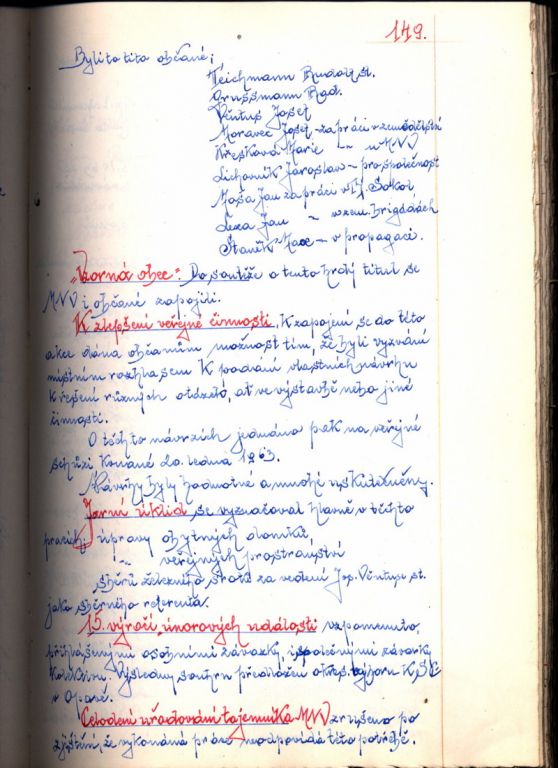 149.
Byli to tito občané:
Teichmann Rudolf st.
Grussmann Rud.
Věntus Josef
Moravec Josef - za práci v zemědělství
Křesková Marie - " - u MNV
Lichovník Jaroslav - pro společnost
Moša Jan za práci v Tj. Sokol
Lexa Jan " v zem. brigádách
Staněk Max - v propagaci.
"Vzorná obec". Do soutěže o tento hrdý titul se
MNV i občané zapojili.
K zlepšení veřejné činnosti. K zapojení se do této
akce dána občanům možnost tím, že byli vyzváni
místním rozhlasem k podání vlastních návrhů
k řešení různých otázek, ať ve výstavbě nebo jiné
činnosti.
O těchto návrzích jednáno pak na veřejné
schůzi konané 20. ledna 1963.
Návrhy byly hodnotné a mnohé uskutečněny.
Jarní úklid se vyznačoval hlavně v těchto
pracích: úpravy obytných domků,
" veřejných prostranství
sběrů železného šrotu za vedení Jos. Věntuse st.
jako sběrného referenta.
15. výročí "únorových událostí" vzpomenuto,
přihlášenými osobními závazky, i společnými závazky
kolektivu. Výsledný souhrn předložen okres. výboru KSČ
v Opavě.
Celodení úřadování tajemníka MNV zrušeno po
zjištění, že vykonaná práce neodpovídá této potřebě.